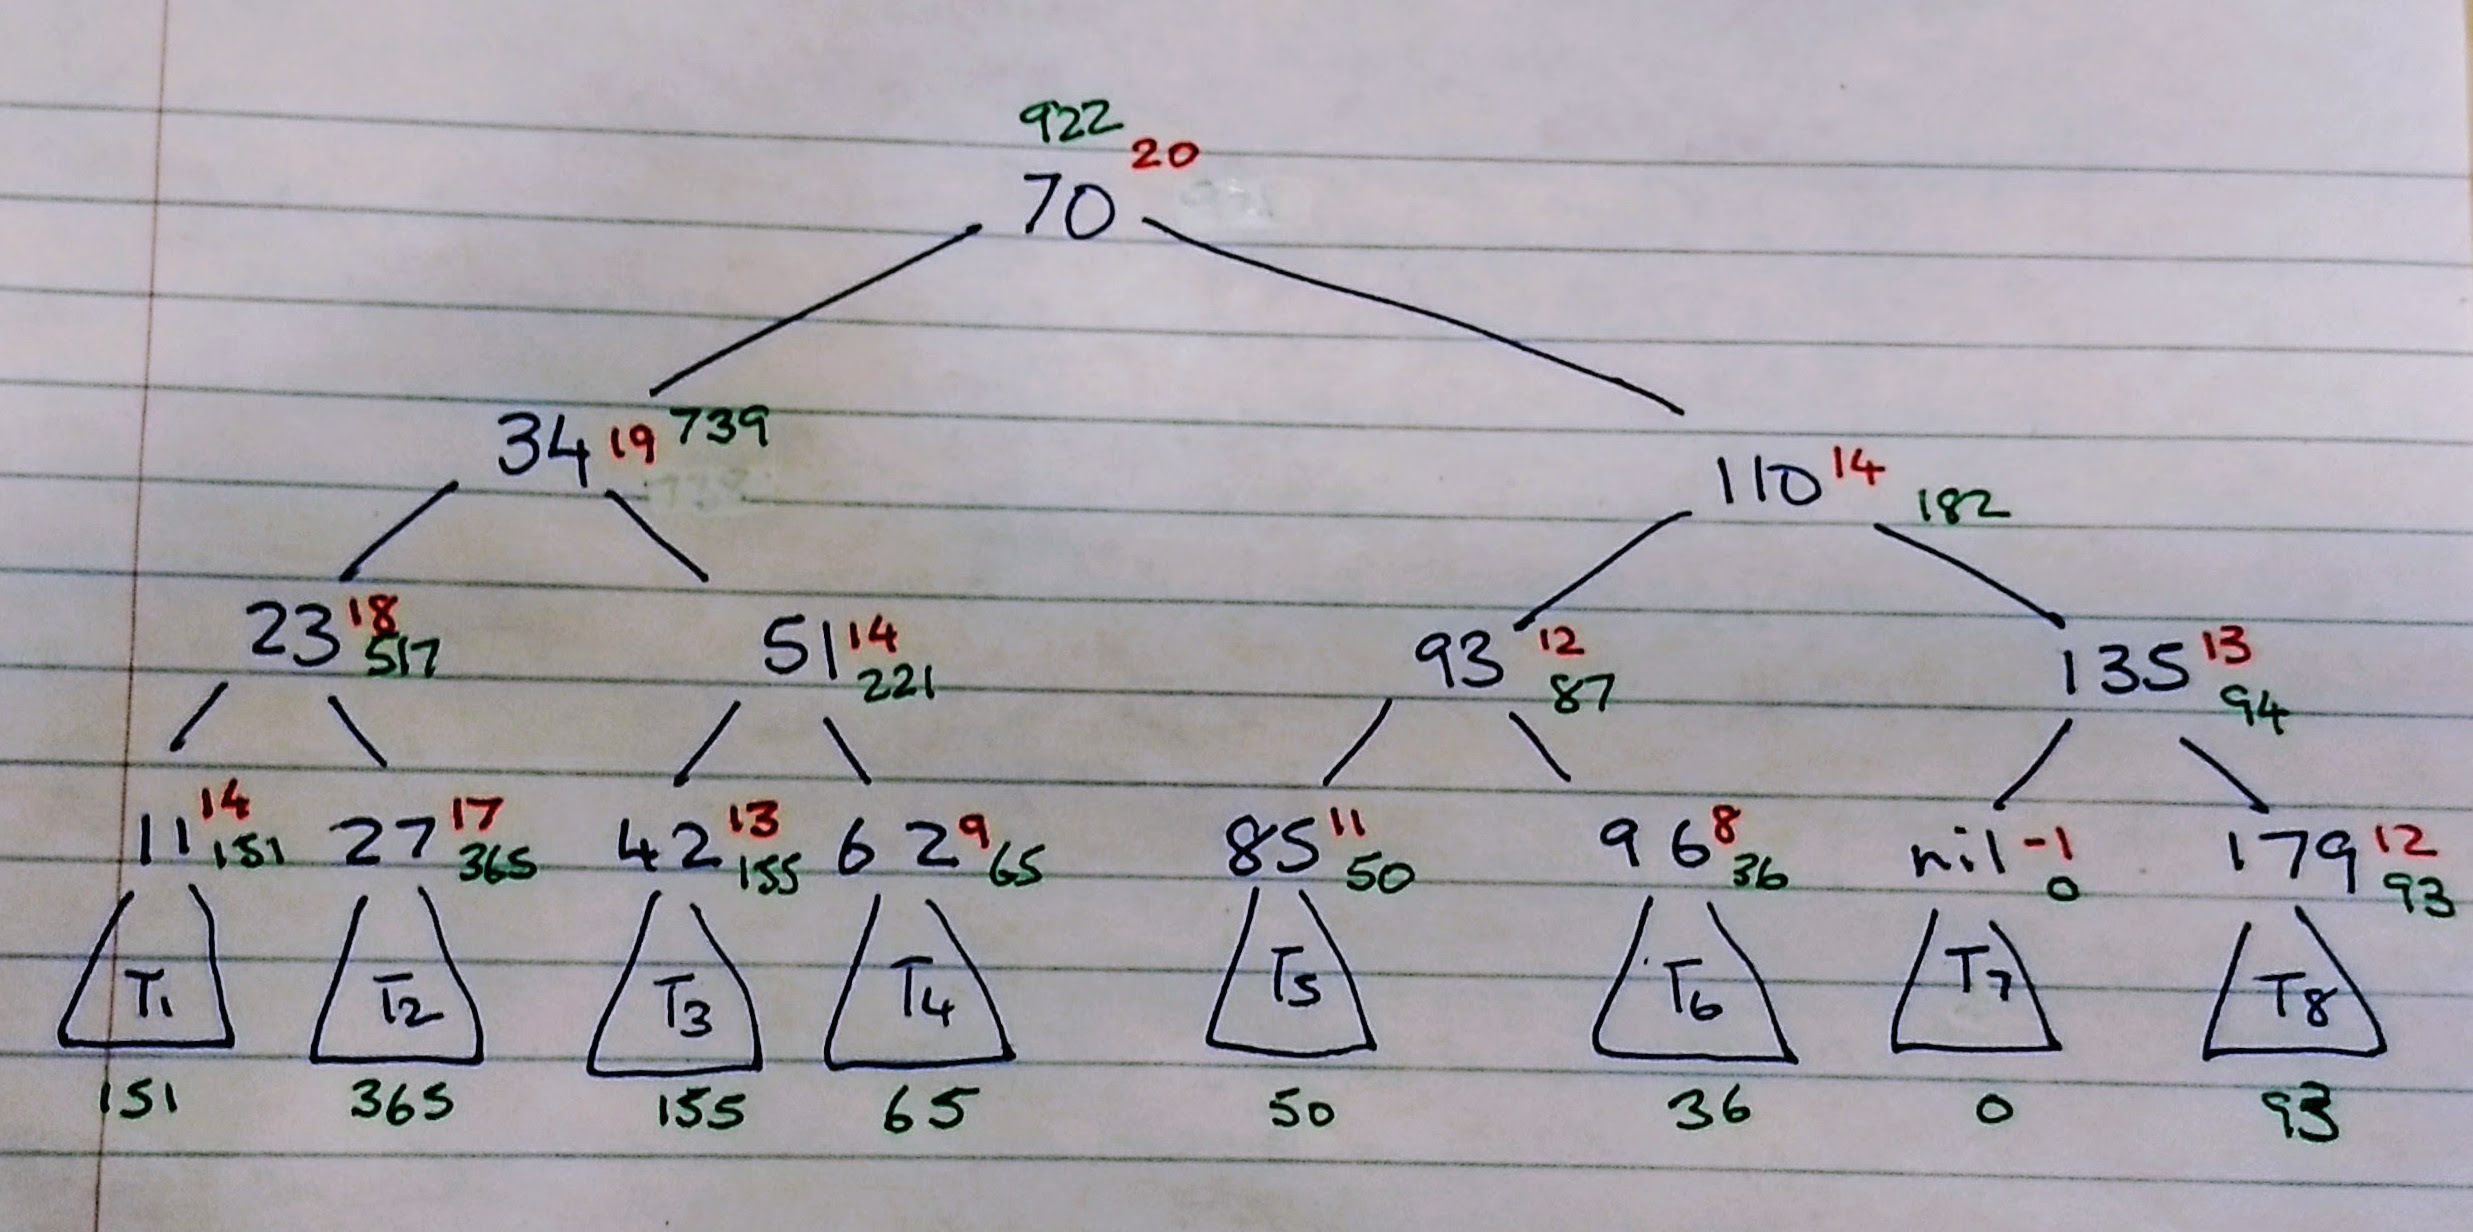 922
20
70
34 19 739
110 14 182
23 18 517
51 14 221
93 12 87
135 13 94
11 14 151
27 17 365
42 13 155
62 9 65
85 11 50
96 8 36
nil -1 0
179 12 93
T1 T2 T3 T4 T5 T6 T7 T8
151 365 155 65 50 36 0 93